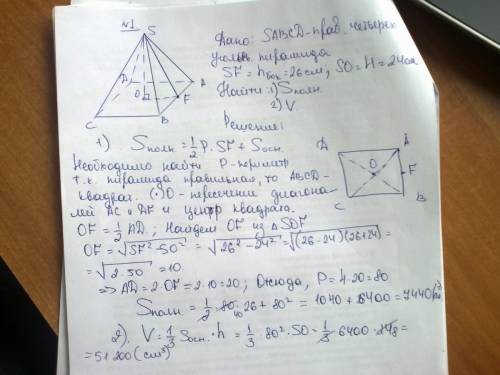 №1
S
Дано: SABCD - прав. четырех
угольн. пирамида
SF = hбок = 26 см, SO = H = 24 см
Найти: 1) Sполн.
2) V
D A
O F
C B
Решение:
1) Sполн. = 1/2 P · SF + Sосн.
Необходимо найти P - периметр
т.к. пирамида правильная, то ABCD -
квадрат. (·) O - пересечение диагона-
лей AC и центр квадрата.
D A
O F
C B
OF = 1/2 AD; Найдем OF из △ SOF
OF = √SF² - SO² = √26² - 24² = √(26-24)(26+24) =
= √2·50 = 10.
=> AD = 2·OF = 2·10 = 20; Отсюда, P = 4·20 = 80
Sполн = 1/2 · 80 · 26 + 80² = 1040 + 6400 = 7440
40
2). V = 1/3 Sосн. · h = 1/3 · 80² · SO = 1/3 · 6400 · 24 8 =
= 51 200 (см³)